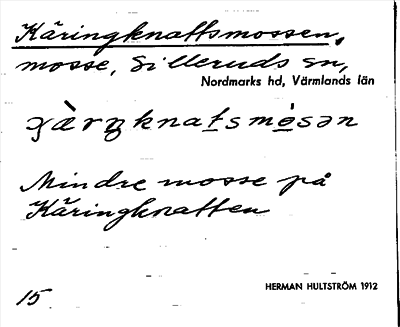 Käringknattsmossen,
mosse, Silleruds sn,
Nordmarks hd, Värmlands län
Mindre mosse på
Käringknatten
HERMAN HULTSTRÖM 1912
15